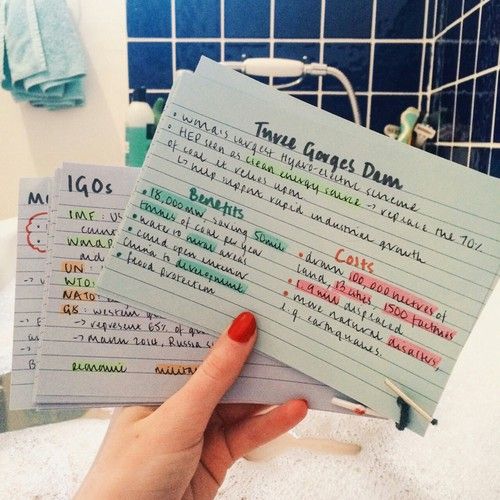 Three Gorges Dam
• world's largest hydro-electric scheme
• HEP seen as clean energy source → replace the 70%
of coal it relies upon
↳ help support rapid industrial growth
Benefits
• 18,000 mw saving 50mil
tonnes of coal per year
• water to rural areas
• could open interior
China to development
• flood protection
Costs
• drown 100,000 hectres of
land, 13 cities 1500 factories
• 1.9mil displaced
• more natural disasters,
e.g earthquakes.
IGOs
IMF: US
WMAP
UN
WTO:
NATO:
G8: western
→ represent 65% of
→ March 2014, Russia
economic military